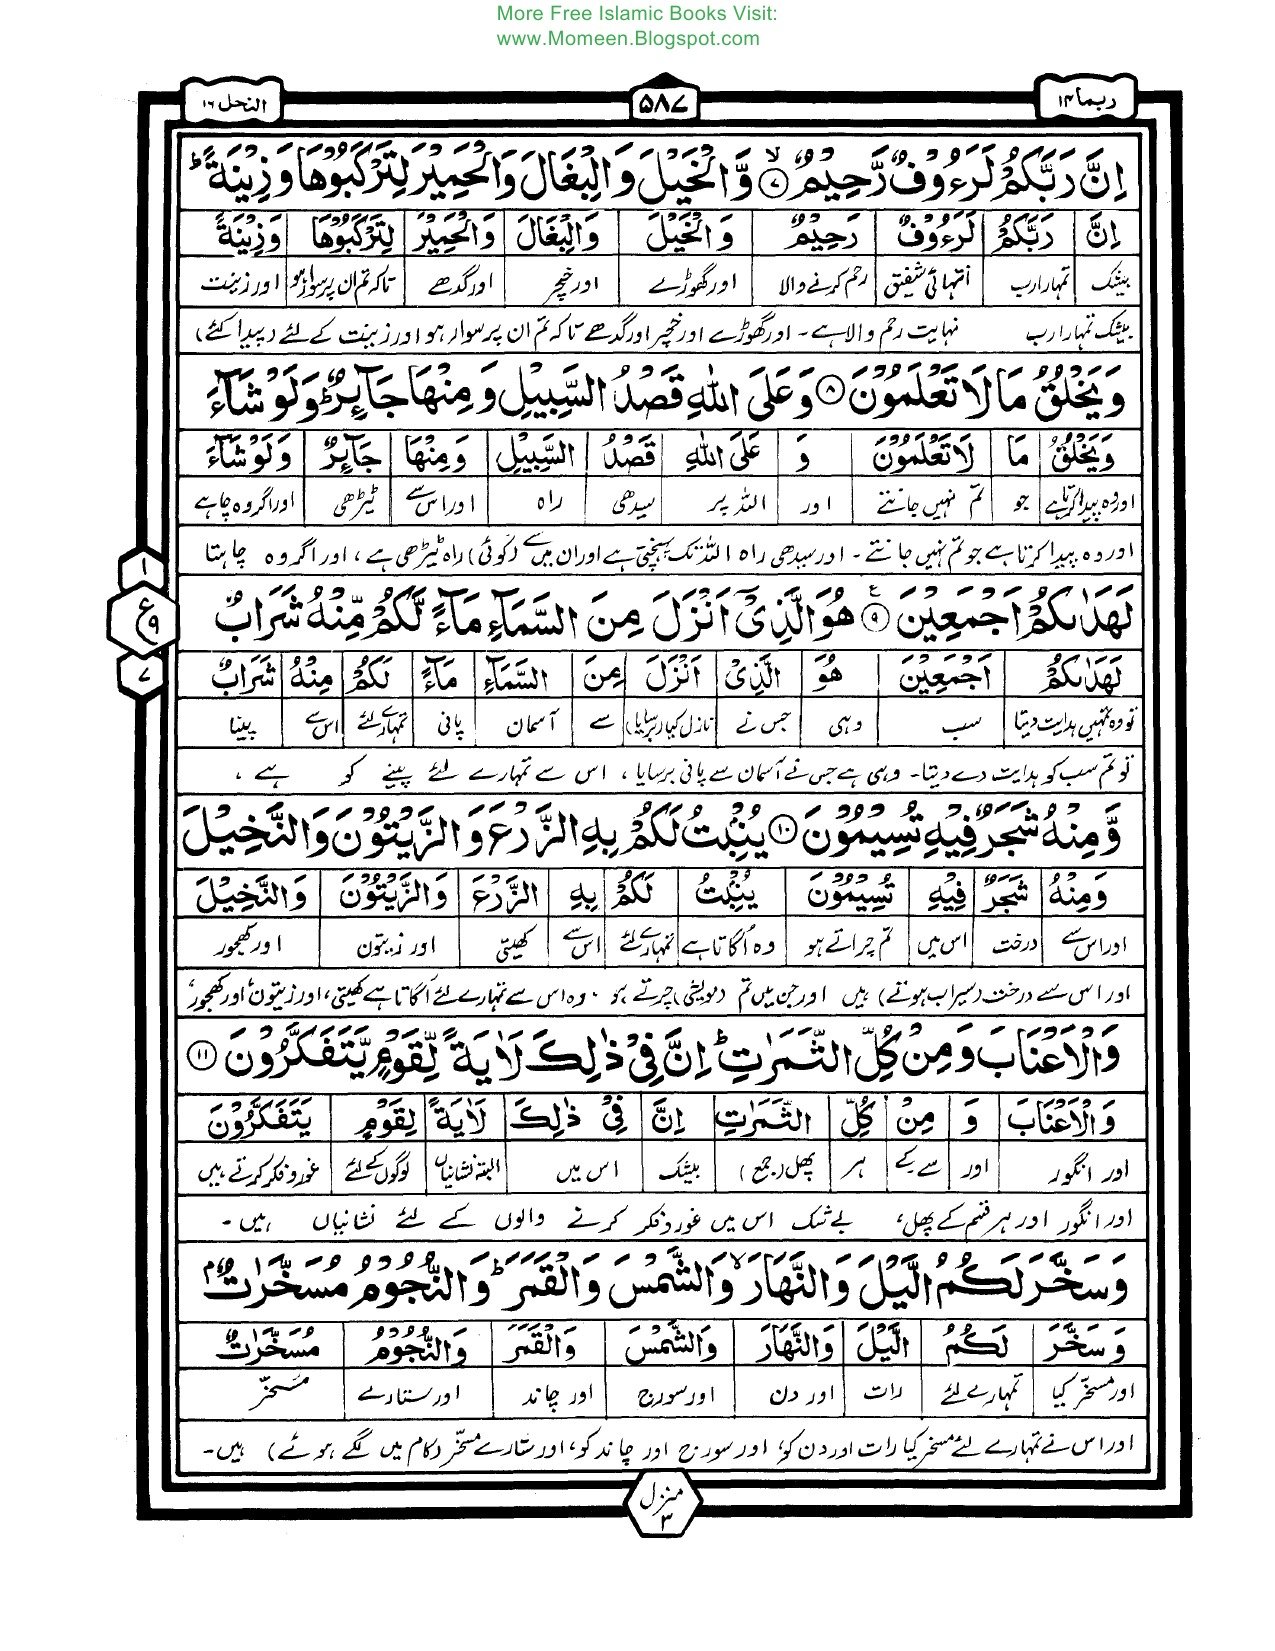 More Free Islamic Books Visit:
www.Momeen.Blogspot.com
ربما ۱۴ ۵۸۷ النحل ۱۶
اِنَّ رَبَّكُمْ لَرَءُوْفٌ رَّحِيْمٌ ۷ لا وَّالْخَيْلَ وَالْبِغَالَ وَالْحَمِيْرَ لِتَرْكَبُوْهَا وَزِيْنَةً ؕ
اِنَّ رَبَّكُمْ لَرَءُوْفٌ رَحِيْمٌ وَالْخَيْلَ وَالْبِغَالَ وَالْحَمِيْرَ لِتَرْكَبُوْهَا وَزِيْنَةً
بیشک تمہارا رب انتہائی شفیق رحم کرنے والا اور گھوڑے اور خچر اور گدھے تاکہ تم ان پر سوار ہو اور زینت
بیشک تمہارا رب نہایت رحم والا ہے۔ اور گھوڑے اور خچر اور گدھے تاکہ تم ان پر سوار ہو اور زینت کے لئے (پیدا کئے)
وَيَخْلُقُ مَا لَا تَعْلَمُوْنَ ۸ وَعَلَى اللّٰهِ قَصْدُ السَّبِيْلِ وَمِنْهَا جَآئِرٌ ؕ وَلَوْ شَآءَ
وَيَخْلُقُ مَا لَا تَعْلَمُوْنَ وَ عَلَى اللّٰهِ قَصْدُ السَّبِيْلِ وَمِنْهَا جَآئِرٌ وَلَوْ شَآءَ
اور وہ پیدا کرتا ہے جو تم نہیں جانتے اور اللہ پر سیدھی راہ اور اس سے ٹیڑھی اور اگر وہ چاہے
اور وہ پیدا کرتا ہے جو تم نہیں جانتے۔ اور سیدھی راہ اللہ تک پہنچتی ہے اور ان میں سے (کوئی) راہ ٹیڑھی ہے، اور اگر وہ چاہتا
۱
ع ۹
۷
لَهَدٰىكُمْ اَجْمَعِيْنَ ۹ ع هُوَ الَّذِيْٓ اَنْزَلَ مِنَ السَّمَآءِ مَآءً لَّكُمْ مِّنْهُ شَرَابٌ
لَهَدٰىكُمْ اَجْمَعِيْنَ هُوَ الَّذِيْ اَنْزَلَ مِنَ السَّمَآءِ مَآءً لَكُمْ مِنْهُ شَرَابٌ
تو وہ تمہیں ہدایت دیتا سب وہی جس نے نازل کیا (برسایا) سے آسمان پانی تمہارے لئے اس سے پینا
تو تم سب کو ہدایت دے دیتا۔ وہی ہے جس نے آسمان سے پانی برسایا، اس سے تمہارے لئے پینے کو ہے،
وَّمِنْهُ شَجَرٌ فِيْهِ تُسِيْمُوْنَ ۱۰ يُنْۢبِتُ لَكُمْ بِهِ الزَّرْعَ وَالزَّيْتُوْنَ وَالنَّخِيْلَ
وَمِنْهُ شَجَرٌ فِيْهِ تُسِيْمُوْنَ يُنْۢبِتُ لَكُمْ بِهِ الزَّرْعَ وَالزَّيْتُوْنَ وَالنَّخِيْلَ
اور اس سے درخت اس میں تم چراتے ہو وہ اُگاتا ہے تمہارے لئے اس سے کھیتی اور زیتون اور کھجور
اور اس سے درخت (سیراب ہوتے) ہیں اور جن میں تم (مویشی) چرتے ہو۔ وہ اس سے تمہارے لئے اُگاتا ہے کھیتی، اور زیتون، اور کھجور،
وَالْاَعْنَابَ وَمِنْ كُلِّ الثَّمَرٰتِ ؕ اِنَّ فِيْ ذٰلِكَ لَاٰيَةً لِّقَوْمٍ يَّتَفَكَّرُوْنَ ۱۱
وَالْاَعْنَابَ وَ مِنْ كُلِّ الثَّمَرٰتِ اِنَّ فِيْ ذٰلِكَ لَاٰيَةً لِقَوْمٍ يَتَفَكَّرُوْنَ
اور انگور اور سے کے ہر پھل (جمع) بیشک اس میں البتہ نشانیاں لوگوں کے لئے غور و فکر کرتے ہیں
اور انگور اور ہر قسم کے پھل، بے شک اس میں غور و فکر کرنے والوں کے لئے نشانیاں ہیں۔
وَسَخَّرَ لَكُمُ الَّيْلَ وَالنَّهَارَ ۙ وَالشَّمْسَ وَالْقَمَرَ ؕ وَالنُّجُوْمُ مُسَخَّرٰتٌۢ
وَسَخَّرَ لَكُمُ الَّيْلَ وَالنَّهَارَ وَالشَّمْسَ وَالْقَمَرَ وَالنُّجُوْمُ مُسَخَّرٰتٌ
اور مسخر کیا تمہارے لئے رات اور دن اور سورج اور چاند اور ستارے مسخر
اور اس نے تمہارے لئے مسخر کیا رات اور دن کو، اور سورج اور چاند کو، اور ستارے مسخر (کام میں لگے ہوئے) ہیں۔
منزل ۳